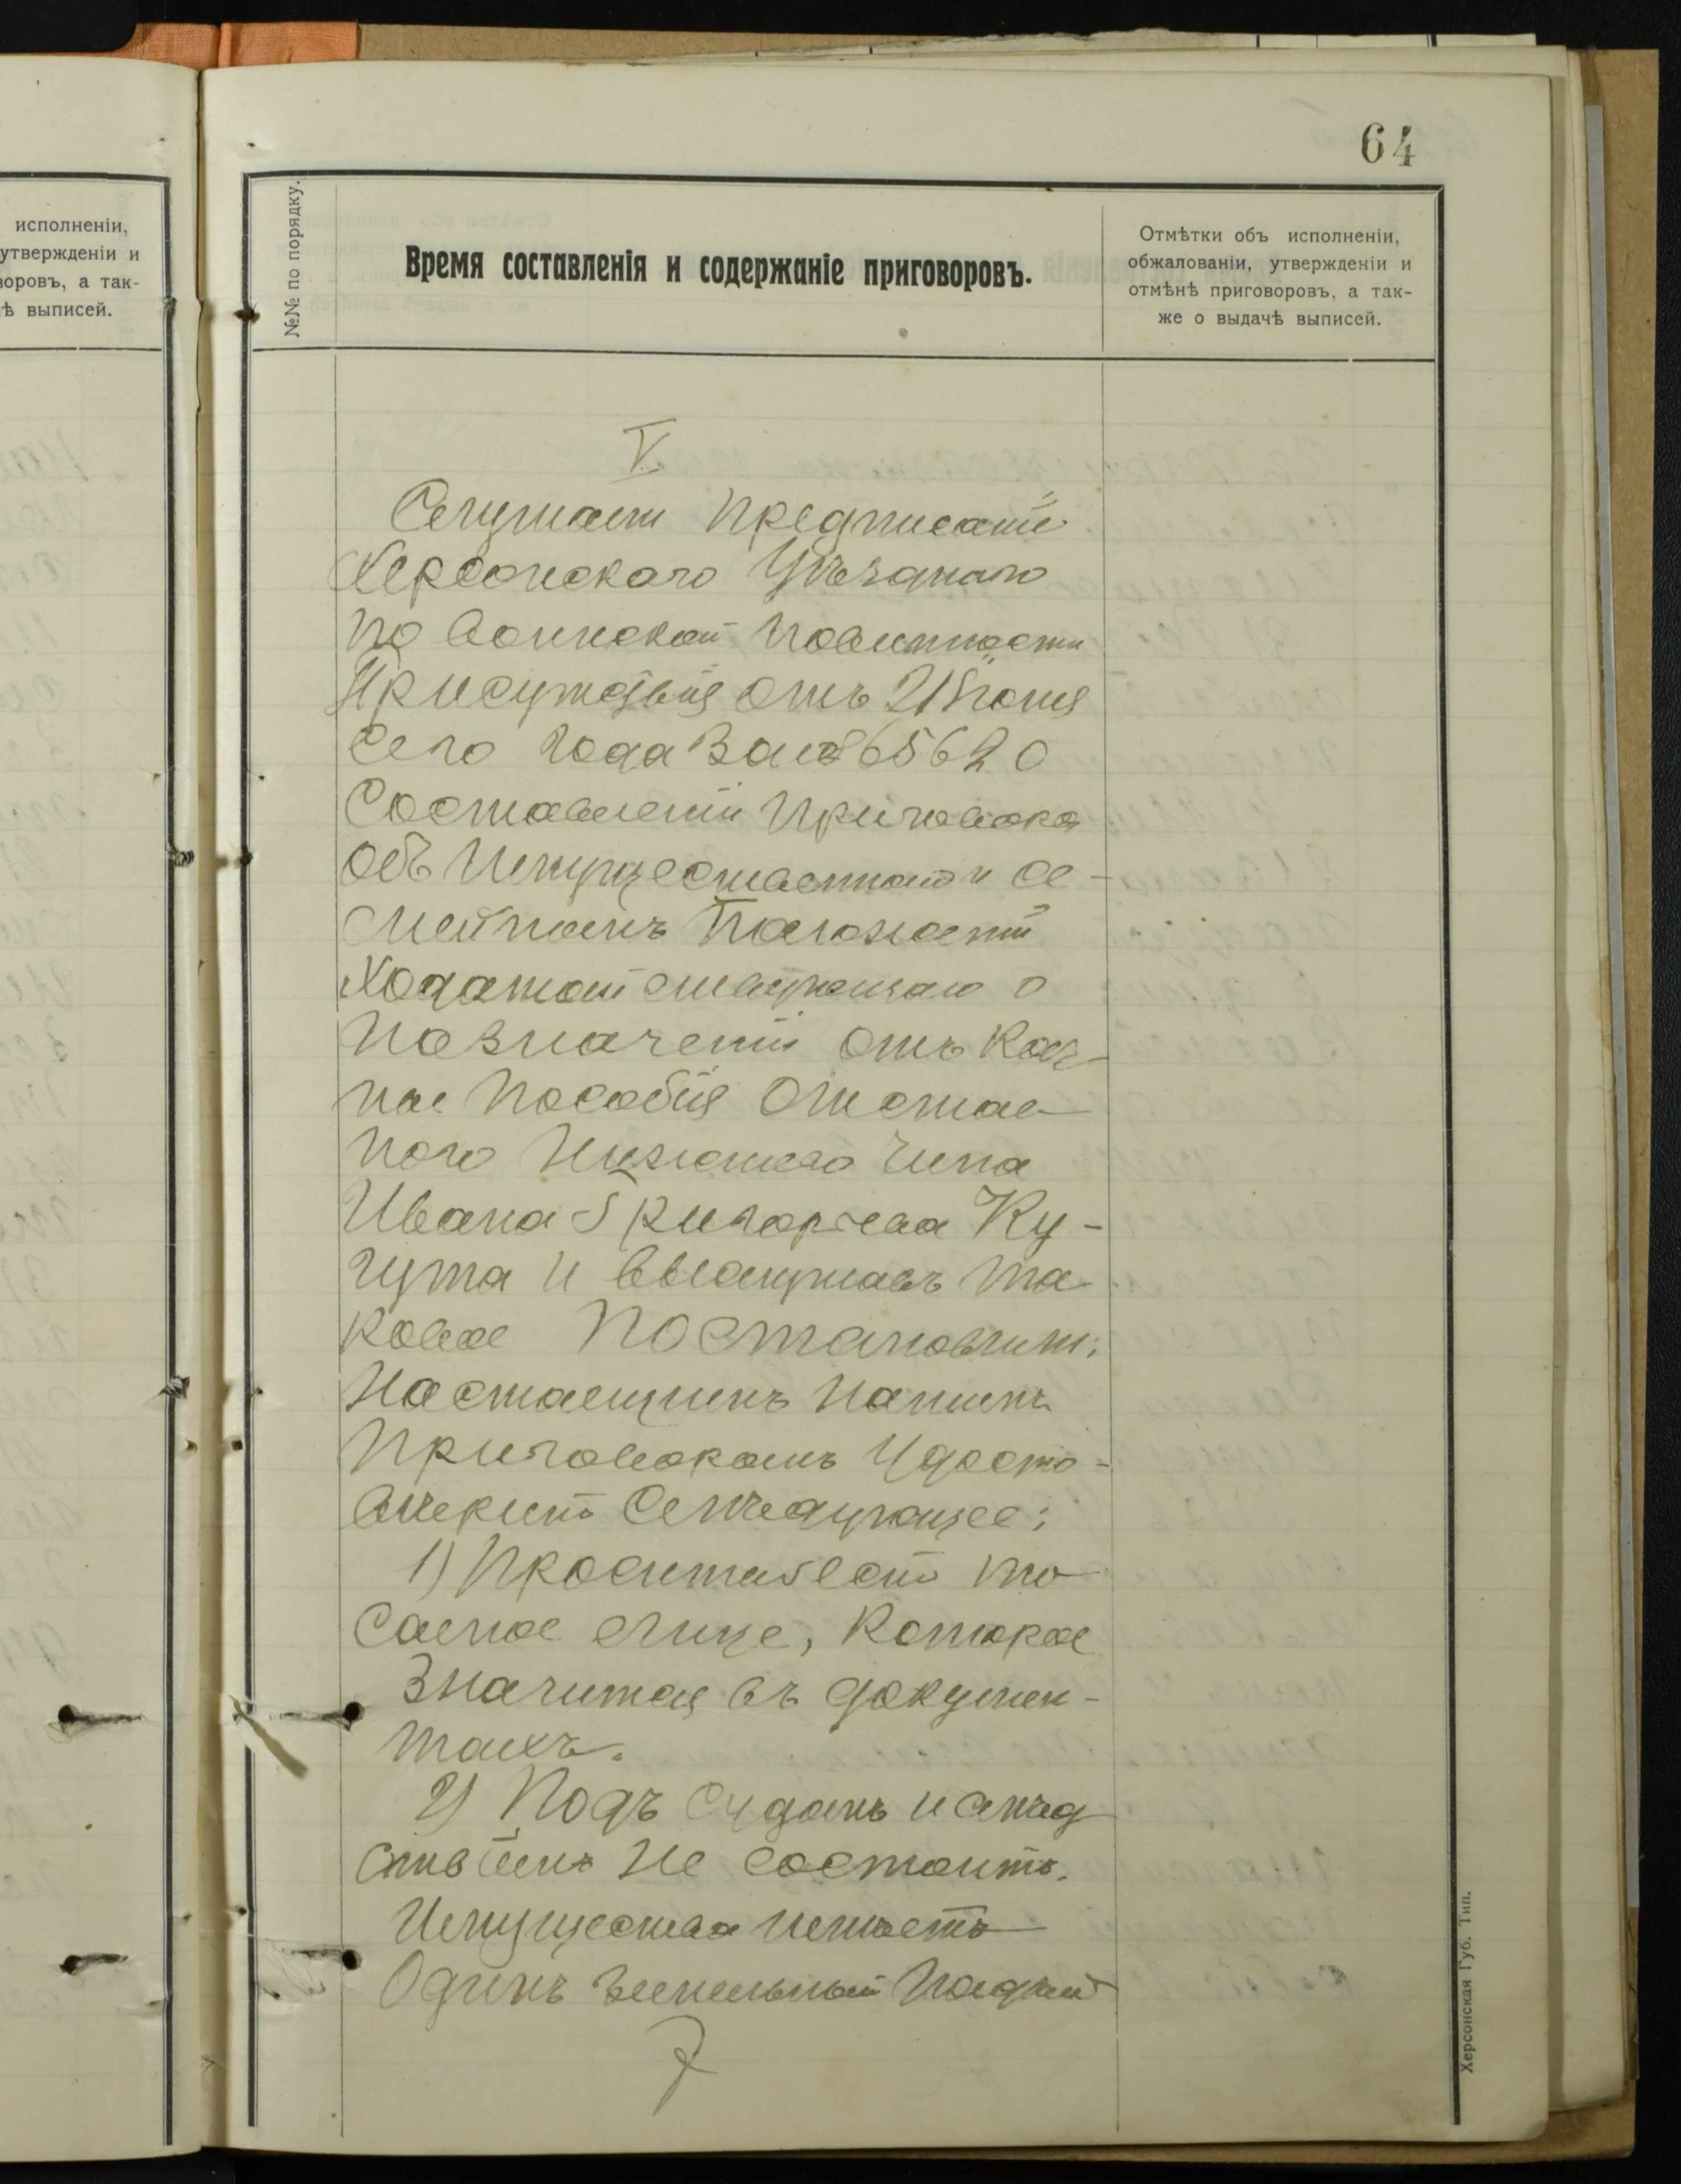 64
исполненіи,
утвержденіи и
воровъ, а так-
ѣ выписей.
№№ по порядку.
Время составленія и содержаніе приговоровъ.
Отмѣтки объ исполненіи,
обжалованіи, утвержденіи и
отмѣнѣ приговоровъ, а так-
же о выдачѣ выписей.
V.
Слушали Предписаніе
Херсонскаго Уѣзднаго
по воинской Повинности
Присутствія отъ 21 Іюня
Сего года За № 5620
Составленіи Приговора
объ Имущественномъ и Се-
мейномъ Положеніи
Ходатайствующаго о
Назначеніи отъ Каз-
ны Пособія Отстав-
ного Нижняго Чина
Ивана Григорьева Ку-
чута и выслушавъ та-
ковое Постановили:
Настоящимъ Нашимъ
Приговоромъ Удосто-
вѣряемъ Слѣдующее:
1) Проситель есть то
Самое Лице, Которое
Значится въ докумен-
тахъ.
2) Подъ Судомъ и слѣд
ствіемъ Не состоитъ.
Имущества имѣетъ
Одинъ земельный Надѣлъ
Херсонская Губ. Тип.